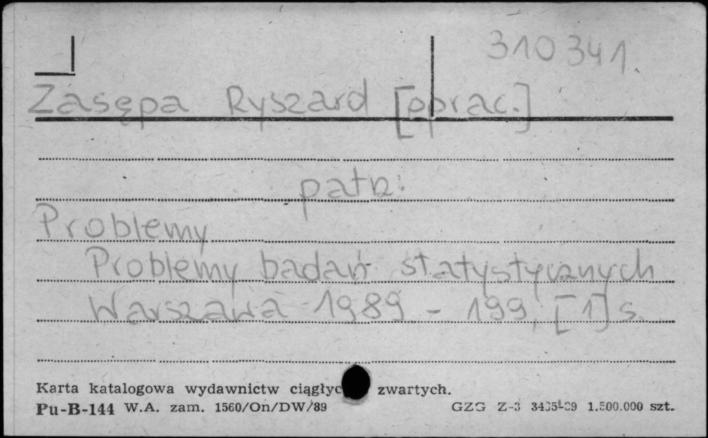 310341.
Zasępa Ryszard [oprac.]
patrz:
Problemy
Problemy badań statystycznych
Warszawa 1989 - 199, [1] s.
Karta katalogowa wydawnictw zwartych.
Pu-B-144 W.A. zam. 1560/On/DW/89 GZG Z-3 1.500.000 szt.